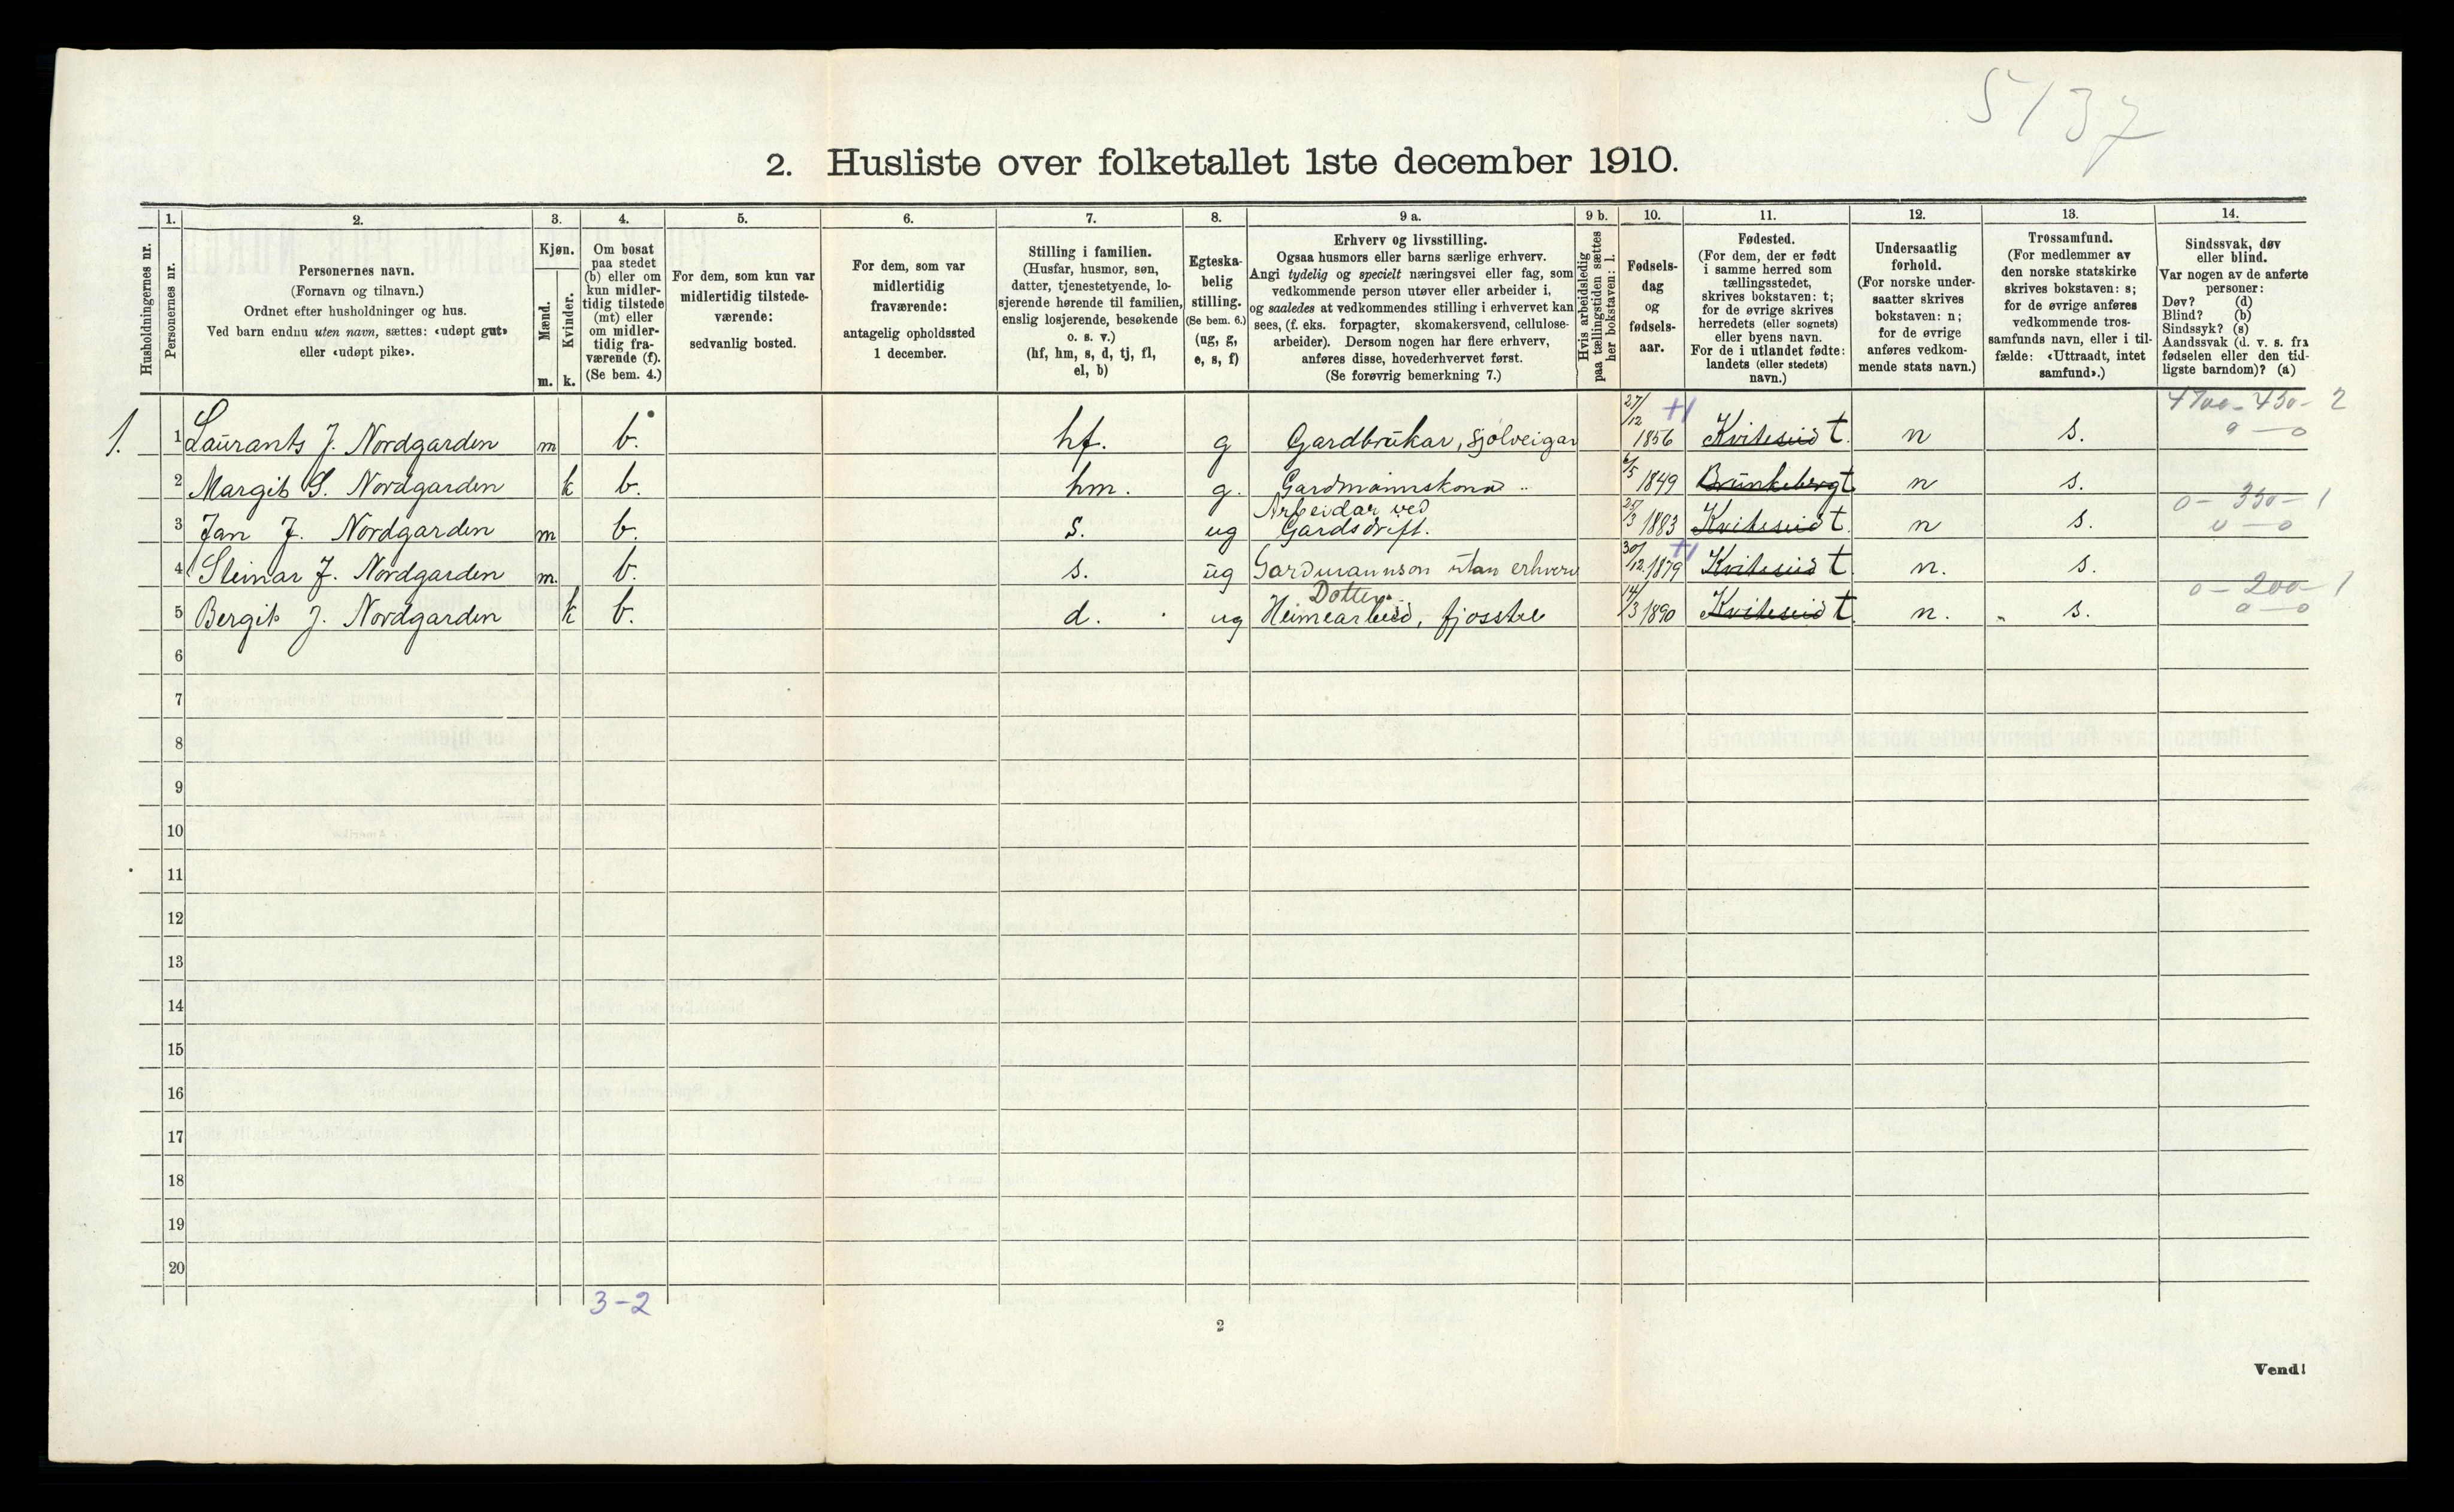 5137
2. Husliste over folketallet 1ste december 1910.
Husholdningernes nr.
1.
Personernes nr.
2.
Personernes navn.
(Fornavn og tilnavn.)
Ordnet efter husholdninger og hus.
Ved barn endnu uten navn, sættes: «udøpt gut»
eller «udøpt pike».
3.
Kjøn.
Mænd.
Kvinder.
m. k.
4.
Om bosat
paa stedet
(b) eller om
kun midler-
tidig tilstede
(mt) eller
om midler-
tidig fra-
værende (f).
(Se bem. 4.)
5.
For dem, som kun var
midlertidig tilstede-
værende:
sedvanlig bosted.
6.
For dem, som var
midlertidig
fraværende:
antagelig opholdssted
1 december.
7.
Stilling i familien.
(Husfar, husmor, søn,
datter, tjenestetyende, lo-
sjerende hørende til familien,
enslig losjerende, besøkende
o. s. v.)
(hf, hm, s, d, tj, fl,
el, b)
8.
Egteska-
belig
stilling.
(Se bem. 6.)
(ug, g,
e, s, f)
9 a.
Erhverv og livsstilling.
Ogsaa husmors eller barns særlige erhverv.
Angi tydelig og specielt næringsvei eller fag, som
vedkommende person utøver eller arbeider i,
og saaledes at vedkommendes stilling i erhvervet kan
sees, (f. eks. forpagter, skomakersvend, cellulose-
arbeider). Dersom nogen har flere erhverv,
anføres disse, hovederhvervet først.
(Se forøvrig bemerkning 7.)
9 b.
Hvis arbeidsledig
paa tællingstiden sættes
her bokstaven: l.
10.
Fødsels-
dag
og
fødsels-
aar.
11.
Fødested.
(For dem, der er født
i samme herred som
tællingsstedet,
skrives bokstaven: t;
for de øvrige skrives
herredets (eller sognets)
eller byens navn.
For de i utlandet fødte:
landets (eller stedets)
navn.)
12.
Undersaatlig
forhold.
(For norske under-
saatter skrives
bokstaven: n;
for de øvrige
anføres vedkom-
mende stats navn.)
13.
Trossamfund.
(For medlemmer av
den norske statskirke
skrives bokstaven: s;
for de øvrige anføres
vedkommende tros-
samfunds navn, eller i til-
fælde: «Uttraadt, intet
samfund».)
14.
Sindssvak, døv
eller blind.
Var nogen av de anførte
personer:
Døv? (d)
Blind? (b)
Sindssyk? (s)
Aandssvak (d. v. s. fra
fødselen eller den tid-
ligste barndom)? (a)
1. 1 Laurants J. Nordgarden m b. hf. g Gardbrukar, sjølveigar 27/12 1856 Kviteseid t. n s.
2 Margit S. Nordgarden k b. hm. g. Gardmannskona 6/5 1849 Brunkeberg t n s.
3 Jan J. Nordgarden m b. s. ug Arbeidar ved Gardsdrift. 25/3 1883 Kviteseid t. n s. 0 - 350 - 1
4 Steinar J. Nordgarden m. b. s. ug Gardmannson utan erhverv 30/12 1879 Kviteseid t. n. s.
5 Bergit J. Nordgarden k b. d. ug Dotter. Heimearbeid, fjosstel 14/3 1890 Kviteseid t. n. s. 0 - 200 - 1
6
7
8
9
10
11
12
13
14
15
16
17
18
19
20
3-2
2
Vend!